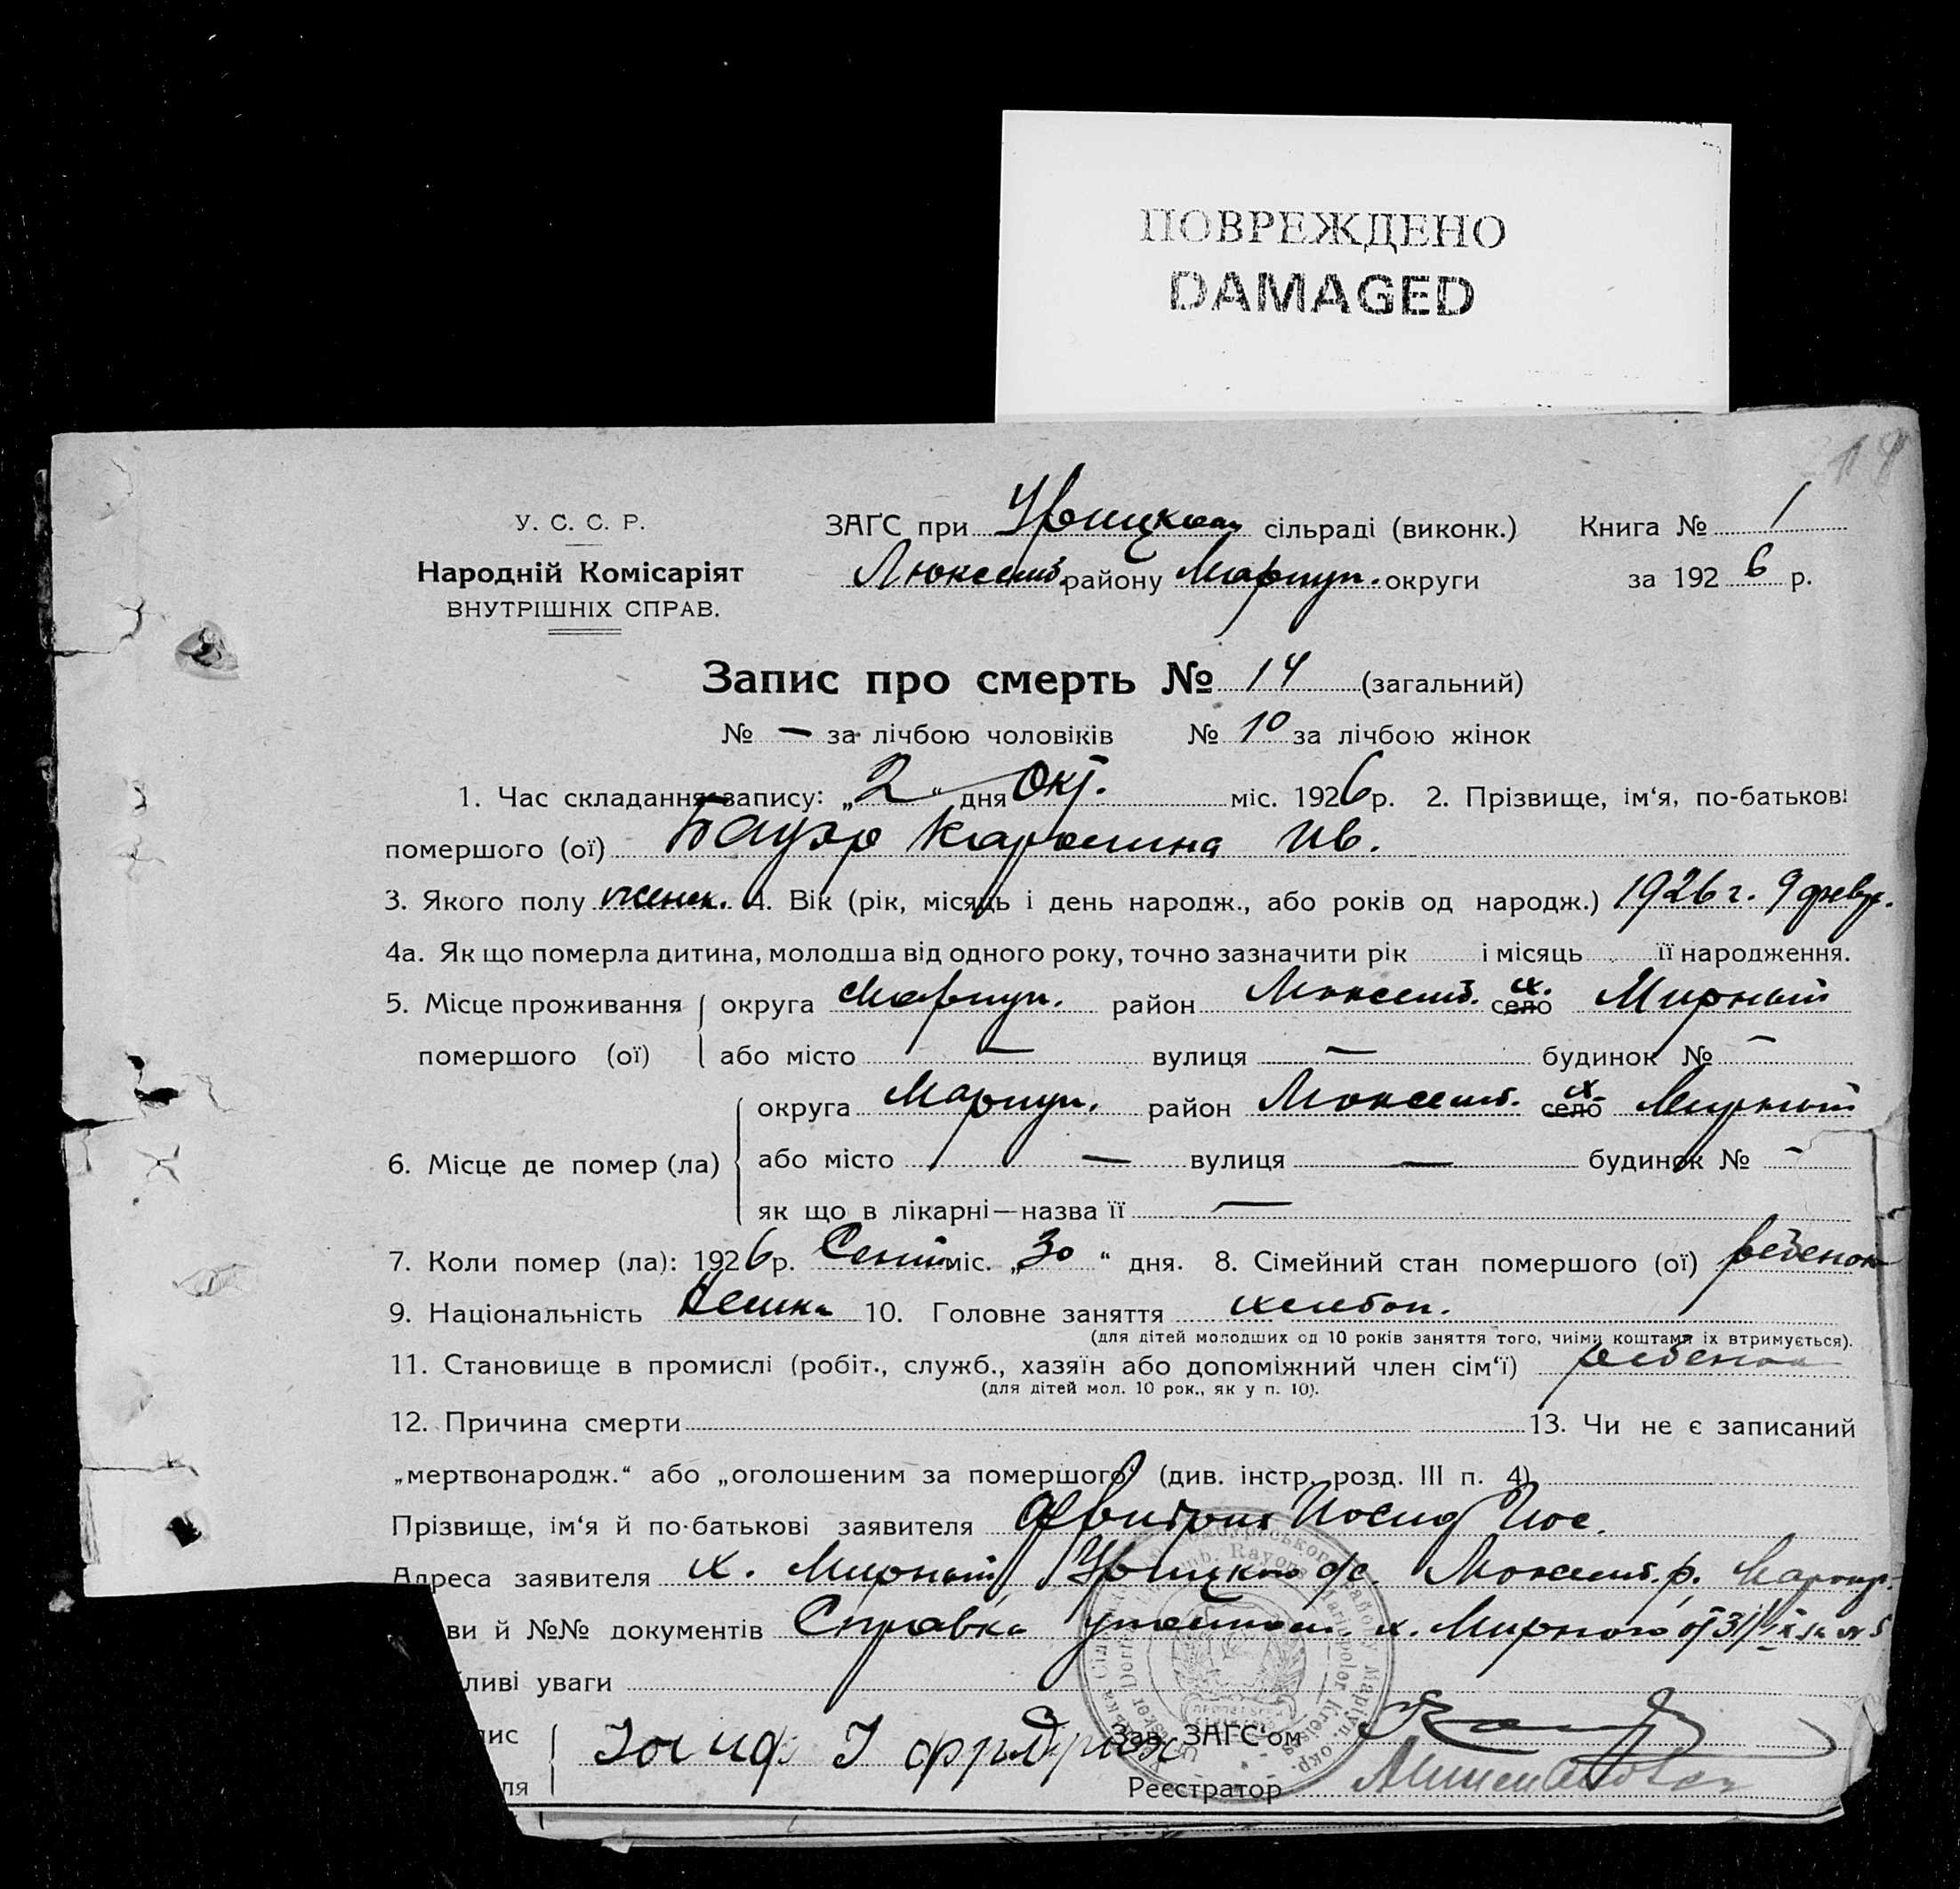 ПОВРЕЖДЕНО
DAMAGED
14
У. С. С. Р.
Народній Комісаріят
ВНУТРІШНІХ СПРАВ.
ЗАҐС при Урицком сільраді (виконк.) Книга № 1
Люксемб. району Мариуп. округи за 1926 р.
Запис про смерть № 14 (загальний)
№ — за лічбою чоловіків № 10 за лічбою жінок
1. Час складання запису: „2“ дня Окт. міс. 1926 р. 2. Прізвище, ім‘я, по-батькові
помершого (ої) Бауэр Каролина Ив.
3. Якого полу женск. 4. Вік (рік, місяць і день народж., або років од народж.) 1926 г. 9 февр.
4а. Як що померла дитина, молодша від одного року, точно зазначити рік і місяць її народження.
5. Місце проживання округа Мариуп. район Люксемб. село х. Мирный
помершого (ої) або місто — вулиця — будинок № —
округа Мариуп. район Люксемб. село х. Мирный
6. Місце де помер (ла) або місто — вулиця — будинок № —
як що в лікарні—назва її —
7. Коли помер (ла): 1926 р. Сент. міс. „30“ дня. 8. Сімейний стан помершого (ої) ребенок
9. Національність Немка 10. Головне заняття хлебоп.
(для дітей молодших од 10 років заняття того, чиїми коштами їх втримується).
11. Становище в промислі (робіт., служб., хазяїн або допоміжний член сім‘ї) ребенок
(для дітей мол. 10 рок., як у п. 10).
12. Причина смерти 13. Чи не є записаний
„мертвонародж.“ або „оголошеним за помершого“ (див. інстр. розд. III п. 4)
Прізвище, ім‘я й по-батькові заявителя Иосиф Иос.
Адреса заявителя х. Мирный Урицкого с/с. Люксемб. р. Мариуп.
ви й №№ документів Справка х. Мирного от
ливі уваги
ис
ля
Зав. ЗАҐС‘ом
Реєстратор